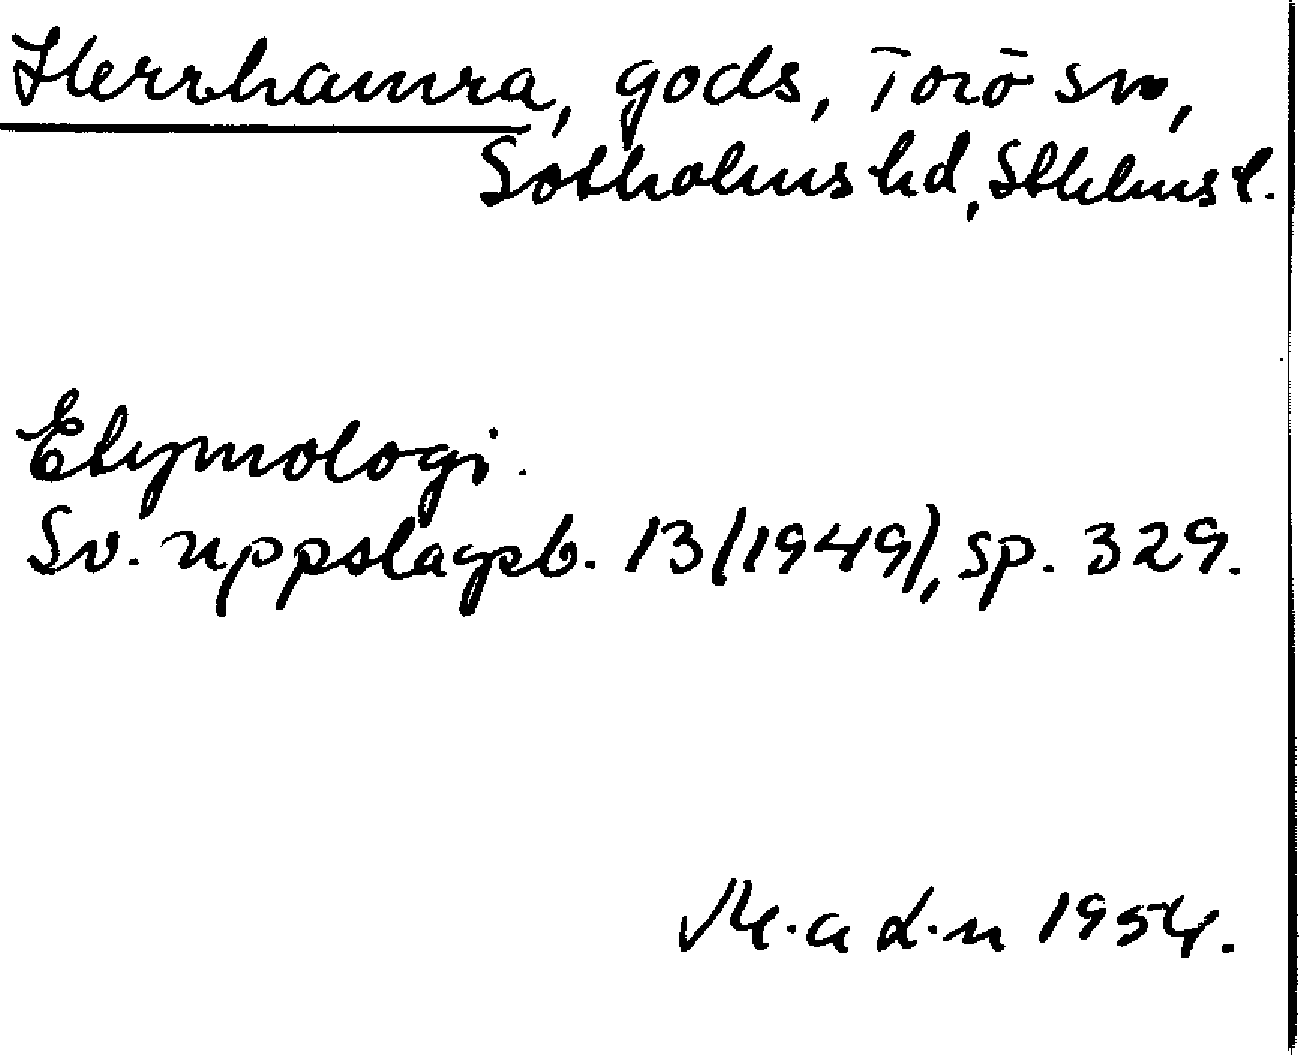 Herrhamra, gods, Torö sn,
Sotholms hd, Sthlms l.
Etymologi.
Sv. uppslagsb. 13 (1949), sp. 329.
1954.